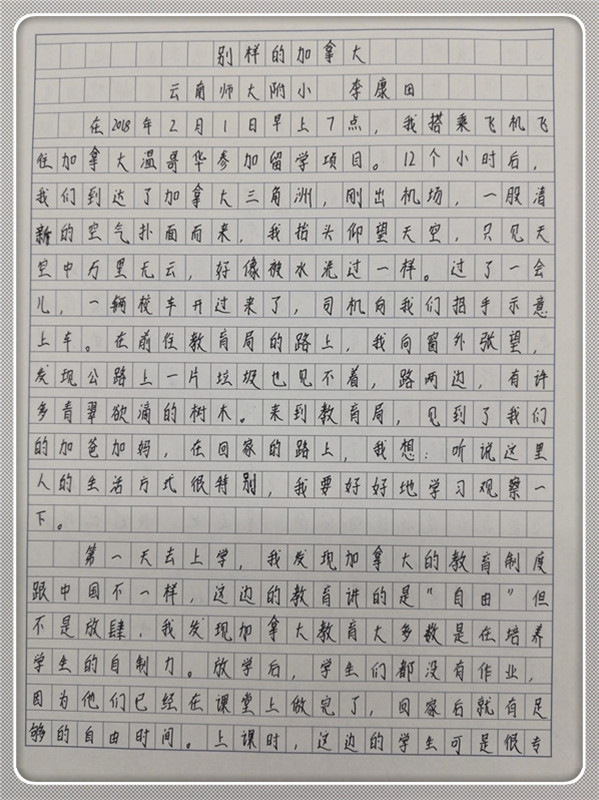 别样的加拿大
云南师大附小 李康田
在2018年2月1日早上7点，我搭乘飞机飞
往加拿大温哥华参加留学项目。12个小时后，
我们到达了加拿大三角洲，刚出机场，一股清
新的空气扑面而来，我抬头仰望天空，只见天
空中万里无云，好像被水洗过一样。过了一会
儿，一辆校车开过来了，司机向我们招手示意
上车。在前往教育局的路上，我向窗外张望，
发现公路上一片垃圾也见不着，路两边，有许
多青翠欲滴的树木。来到教育局，见到了我们
的加爸加妈，在回家的路上，我想：听说这里
人的生活方式很特别，我要好好地学习观察一
下。
第一天去上学，我发现加拿大的教育制度
跟中国不一样，这边的教育讲的是“自由”但
不是放肆，我发现加拿大教育大多数是在培养
学生的自制力。放学后，学生们都没有作业，
因为他们已经在课堂上做完了，回家后就有足
够的自由时间。上课时，这边的学生可是很专